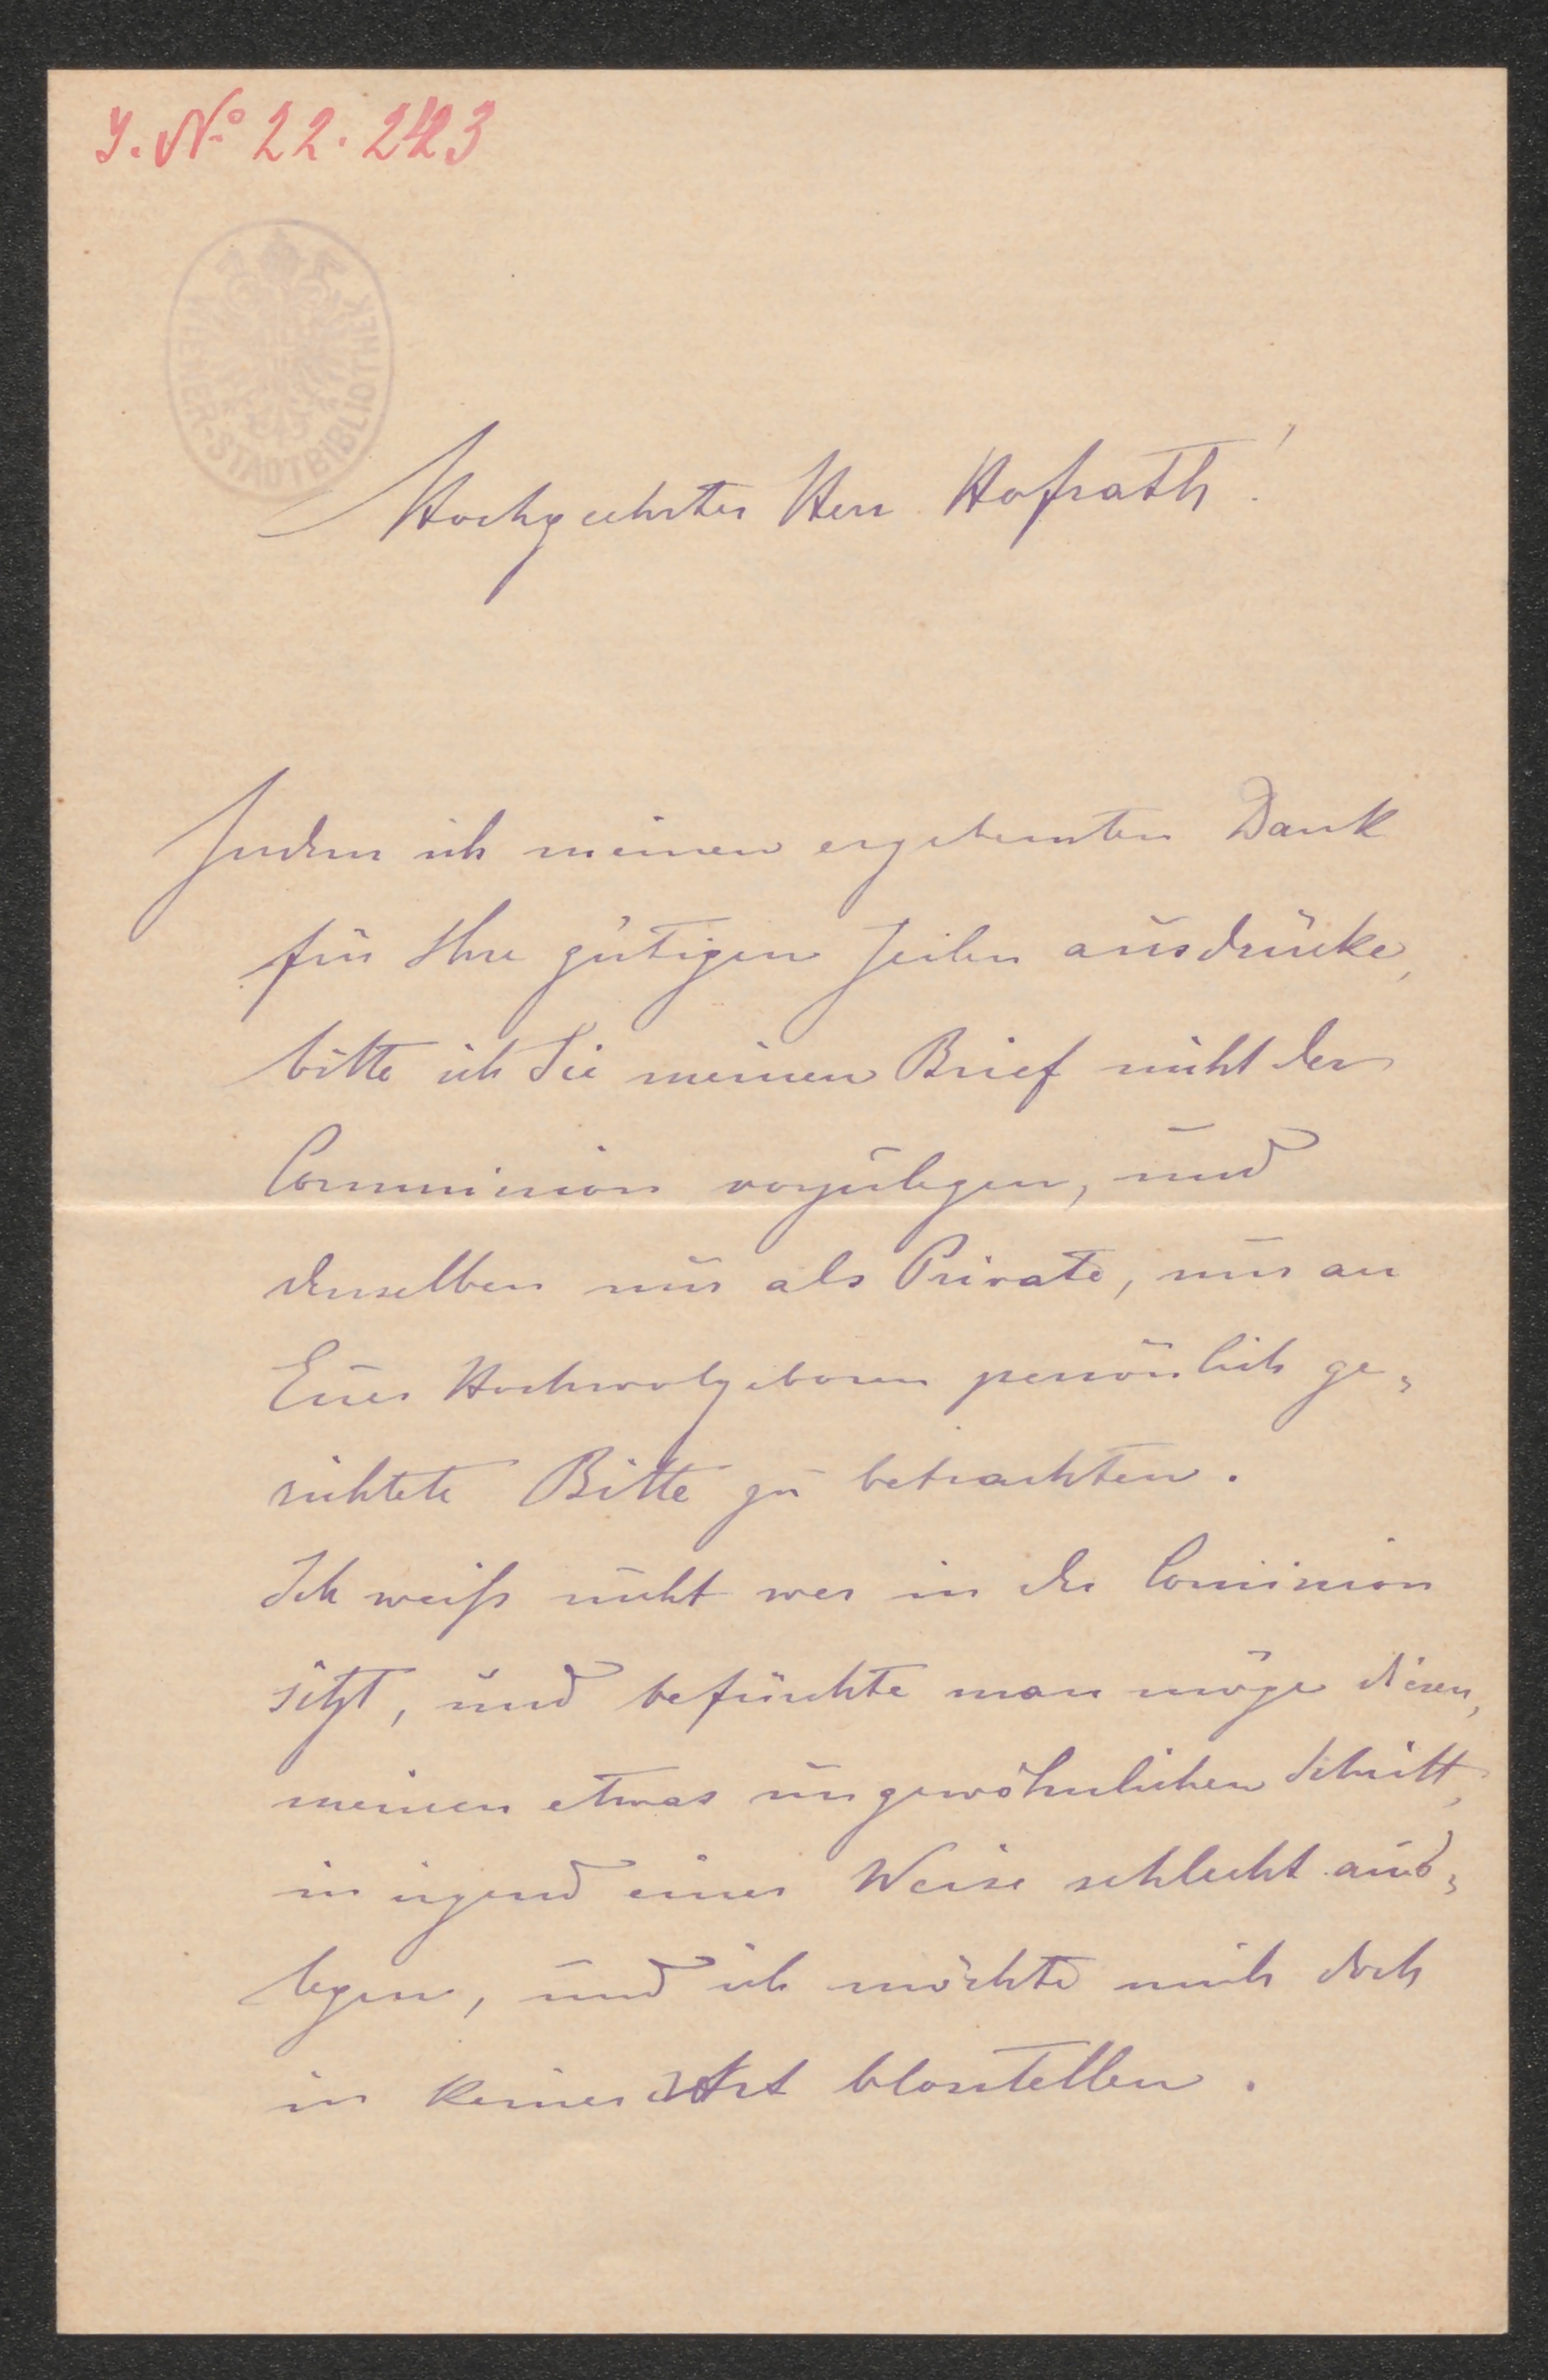 J. No 22.243
WIENER-STADTBIBLIOTHEK
Hochgeehrter Herr Hofrath!
Indem ich meinen ergebensten Dank
für Ihre gütigen Zeilen ausdrücke,
bitte ich Sie meinen Brief nicht der
Commission vorzulegen, und
denselben nur als Private, nur an
Euer Hochwolgeboren persönlich ge-
richtete Bitte zu betrachten.
Ich weiß nicht wer in der Com̅ission
sitzt, und befürchte man möge diesen,
meinen etwas ungewöhnlichen Schritt,
in irgend einer Weise schlecht aus-
legen, und ich möchte mich doch
in keiner Art blosstellen.